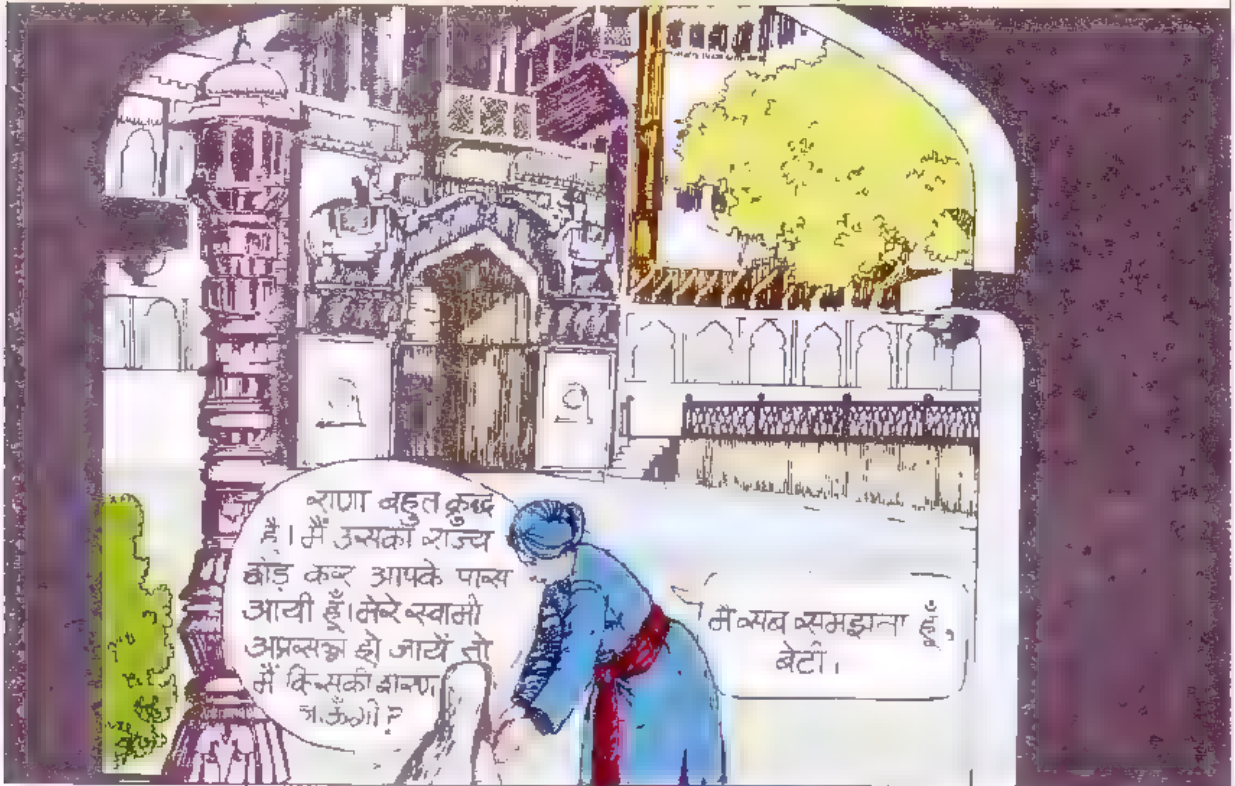 राणा बहुत क्रुद्ध
हैं। मैं उसका राज्य
छोड़ कर आपके पास
आयी हूँ। मेरे स्वामी
अप्रसन्न हो जायें तो
मैं किसकी शरण
जाऊँगी?
मैं सब समझता हूँ,
बेटी।